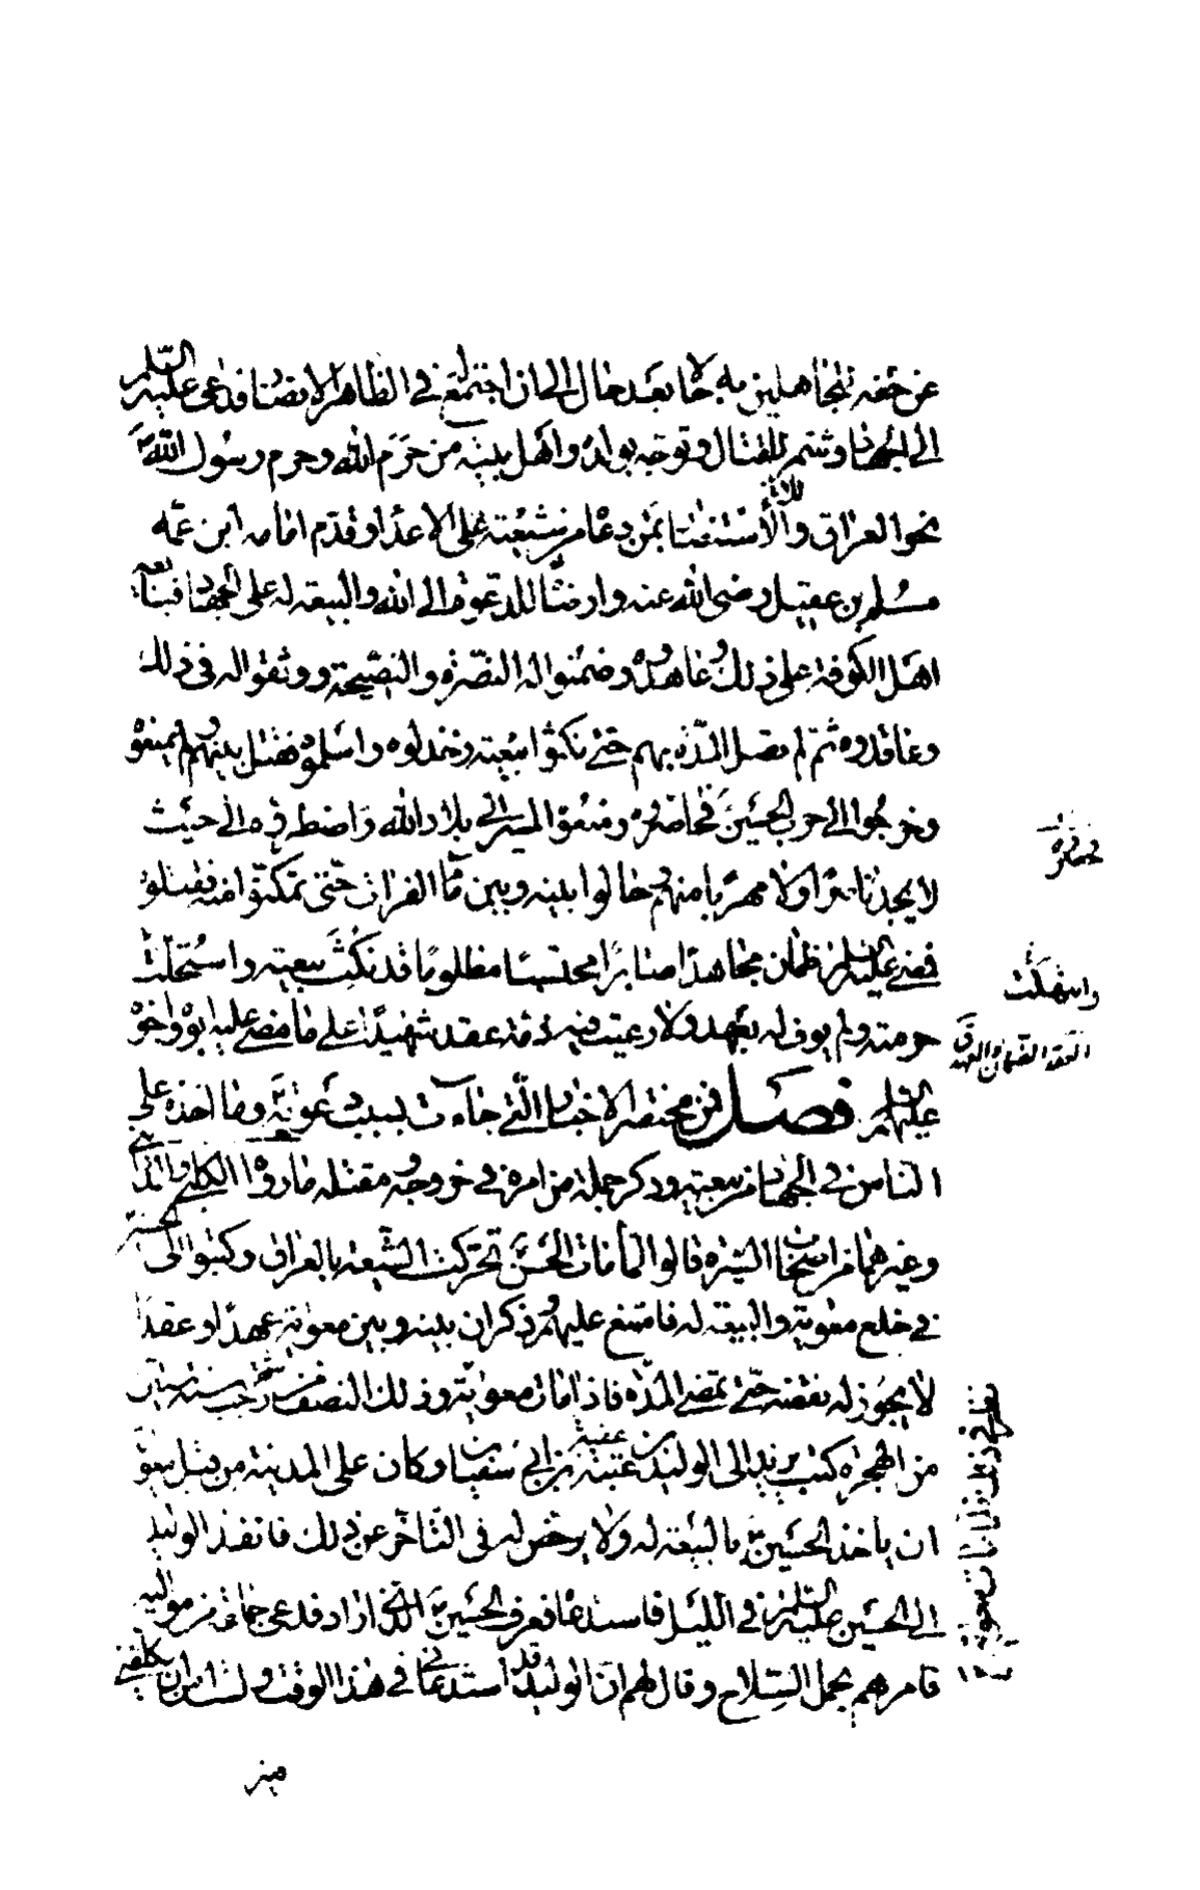 عن حقه للجاهلين به حالا بعد حال الى ان اجتمع له في الظاهر الانصار فدعى عليه السلم
الى الجهاد وشمر للقتال وتوجه بولده واهل بيته من حرم الله وحرم رسول الله
نحو العراق للاستنصار بمن دعاه من شيعته على الاعداء وقدم امامه ابن عمه
مسلم بن عقيل رضى الله عنه وارضاه للدعوة الى الله والبيعة له على الجهاد فبايعه
اهل الكوفة على ذلك وعاهدوه وضمنوا له النصرة والنصيحة ووثقوا له في ذلك
وعاقدوه ثم لم تطل المدة بهم حتى نكثوا بيعته وخذلوه واسلموه فقتل بينهم ولم يمنعوه
وخرجوا الى حرب الحسين فحاصروه ومنعوه المسير الى بلاد الله واضطروه الى حيث
لا يجد ناصرا ولا مهربا منهم وحالوا بينه وبين ماء الفرات حتى تمكنوا منه فقتلوه
فمضى عليه السلم ظمان مجاهدا صابرا محتسبا مظلوما قد نكثت بيعته واستحلت
حرمته ولم يوف له بعهد ولا رعيت فيه ذمة عقد شهيدا على ما مضى عليه ابوه واخوه
عليهم السلم فصل فمن مختصر الاخبار التي جاءت بسبب دعوته وما اخذه على
الناس في الجهاد من بيعته وذكر جملة من امره في خروجه ومقتله ما رواه الكلبي والمدائني
وغيرهما من اصحاب السيرة قالوا لما مات الحسن تحركت الشيعة بالعراق وكتبوا الى الحسين
في خلع معوية والبيعة له فامتنع عليهم وذكر ان بينه وبين معوية عهدا وعقدا
لا يجوز له نقضه حتى تمضي المدة فاذا مات معوية وذلك للنصف من رجب سنة ستين
من الهجرة كتب يزيد الى الوليد بن عتبة بن ابي سفيان وكان على المدينة من قبل معوية
ان ياخذ الحسين بالبيعة له ولا يرخص له في التاخر عن ذلك فانفذ الوليد
الى الحسين عليه السلم في الليل فاستدعاه فعرف الحسين الذي اراد فدعى جماعة من مواليه
فامرهم بحمل السلاح وقال لهم ان الوليد قد استدعاني في هذا الوقت ولست امن ان يكلفني
واستحلت